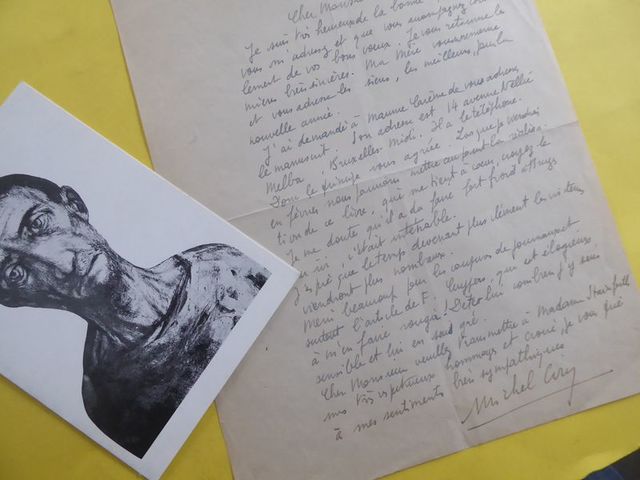 Cher Monsieur
Je suis très heureux de la bonne
vous m'adressez et que vous accompagnez
lement de vos bons vœux. Je vous retourne les
miens bien sincères. Ma Mère
et vous adresse les siens, les meilleurs, pour la
nouvelle année.
J'ai demandé à Maurice Carême de vous adresser
le manuscrit. Son adresse est 14 avenue Nellie
Melba, Bruxelles Midi. Il a le téléphone.
vous agrée. Lorsque je viendrai
en février, nous pourrons mettre au point la réalisa-
tion de ce livre, qui me tient à cœur, croyez-le.
Je me doute qu'il a dû faire fort froid à Bruges
ici, c'était intenable.
J'espère que le temps devenant plus clément les visiteurs
viendront plus nombreux.
Merci beaucoup pour les coupures de journaux et
surtout l'article de F. qui est élogieux
à m'en faire rougir! Dites lui combien j'y suis
sensible et lui en sais gré.
Cher Monsieur veuillez transmettre à Madame
mes très respectueux hommages et croire, je vous prie
à mes sentiments bien sympathiques
Michel Ciry